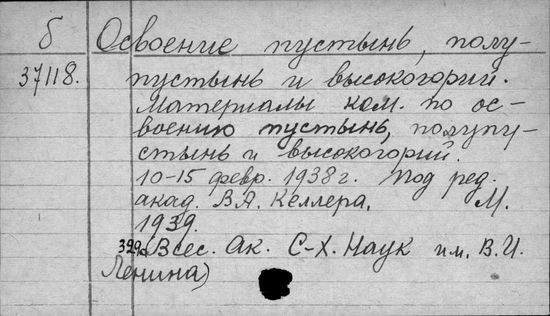 б Освоение пустынь, полу-
37118. пустынь и высокогорий.
Материалы ком. по ос-
воению пустынь, полупу-
стынь и высокогорий.
10-15 февр. 1938 г. Под ред.
акад. В.А. Келлера. М.
1939.
399с. (Всес. Ак. С-Х. Наук им. В.И.
Ленина)